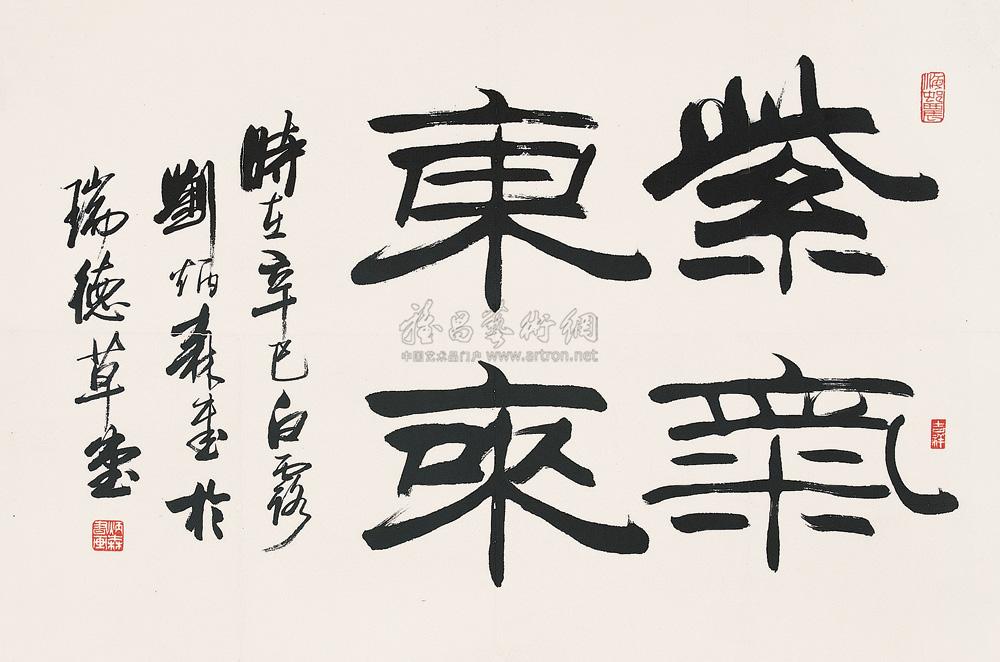 紫氣
東來
時在辛巳白露
劉炳森書於
瑞德草堂
吉祥
炳森書畫
雅昌藝術網
中国艺术品门户 www.artron.net